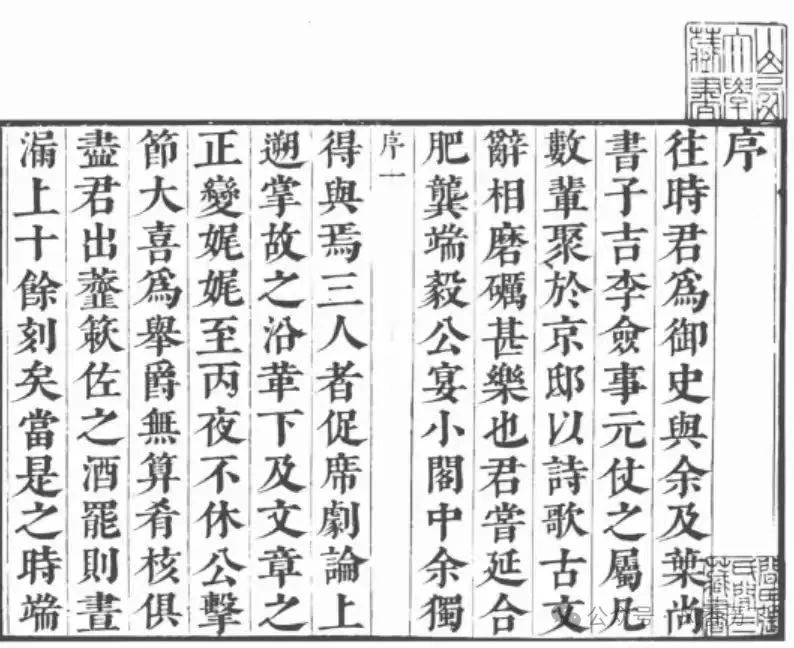 序
往時君爲御史與余及葉尚
書子吉李僉事元仗之屬凡
數輩聚於京邸以詩歌古文
辭相磨礪甚樂也君嘗延合
肥龔端毅公宴小閣中余獨
序一
得與焉三人者促席劇論上
遡掌故之沿革下及文章之
正變娓娓至丙夜不休公擊
節大喜爲舉爵無算肴核俱
盡君出虀簌佐之酒罷則晝
漏上十餘刻矣當是之時端
大學藏書
公众号